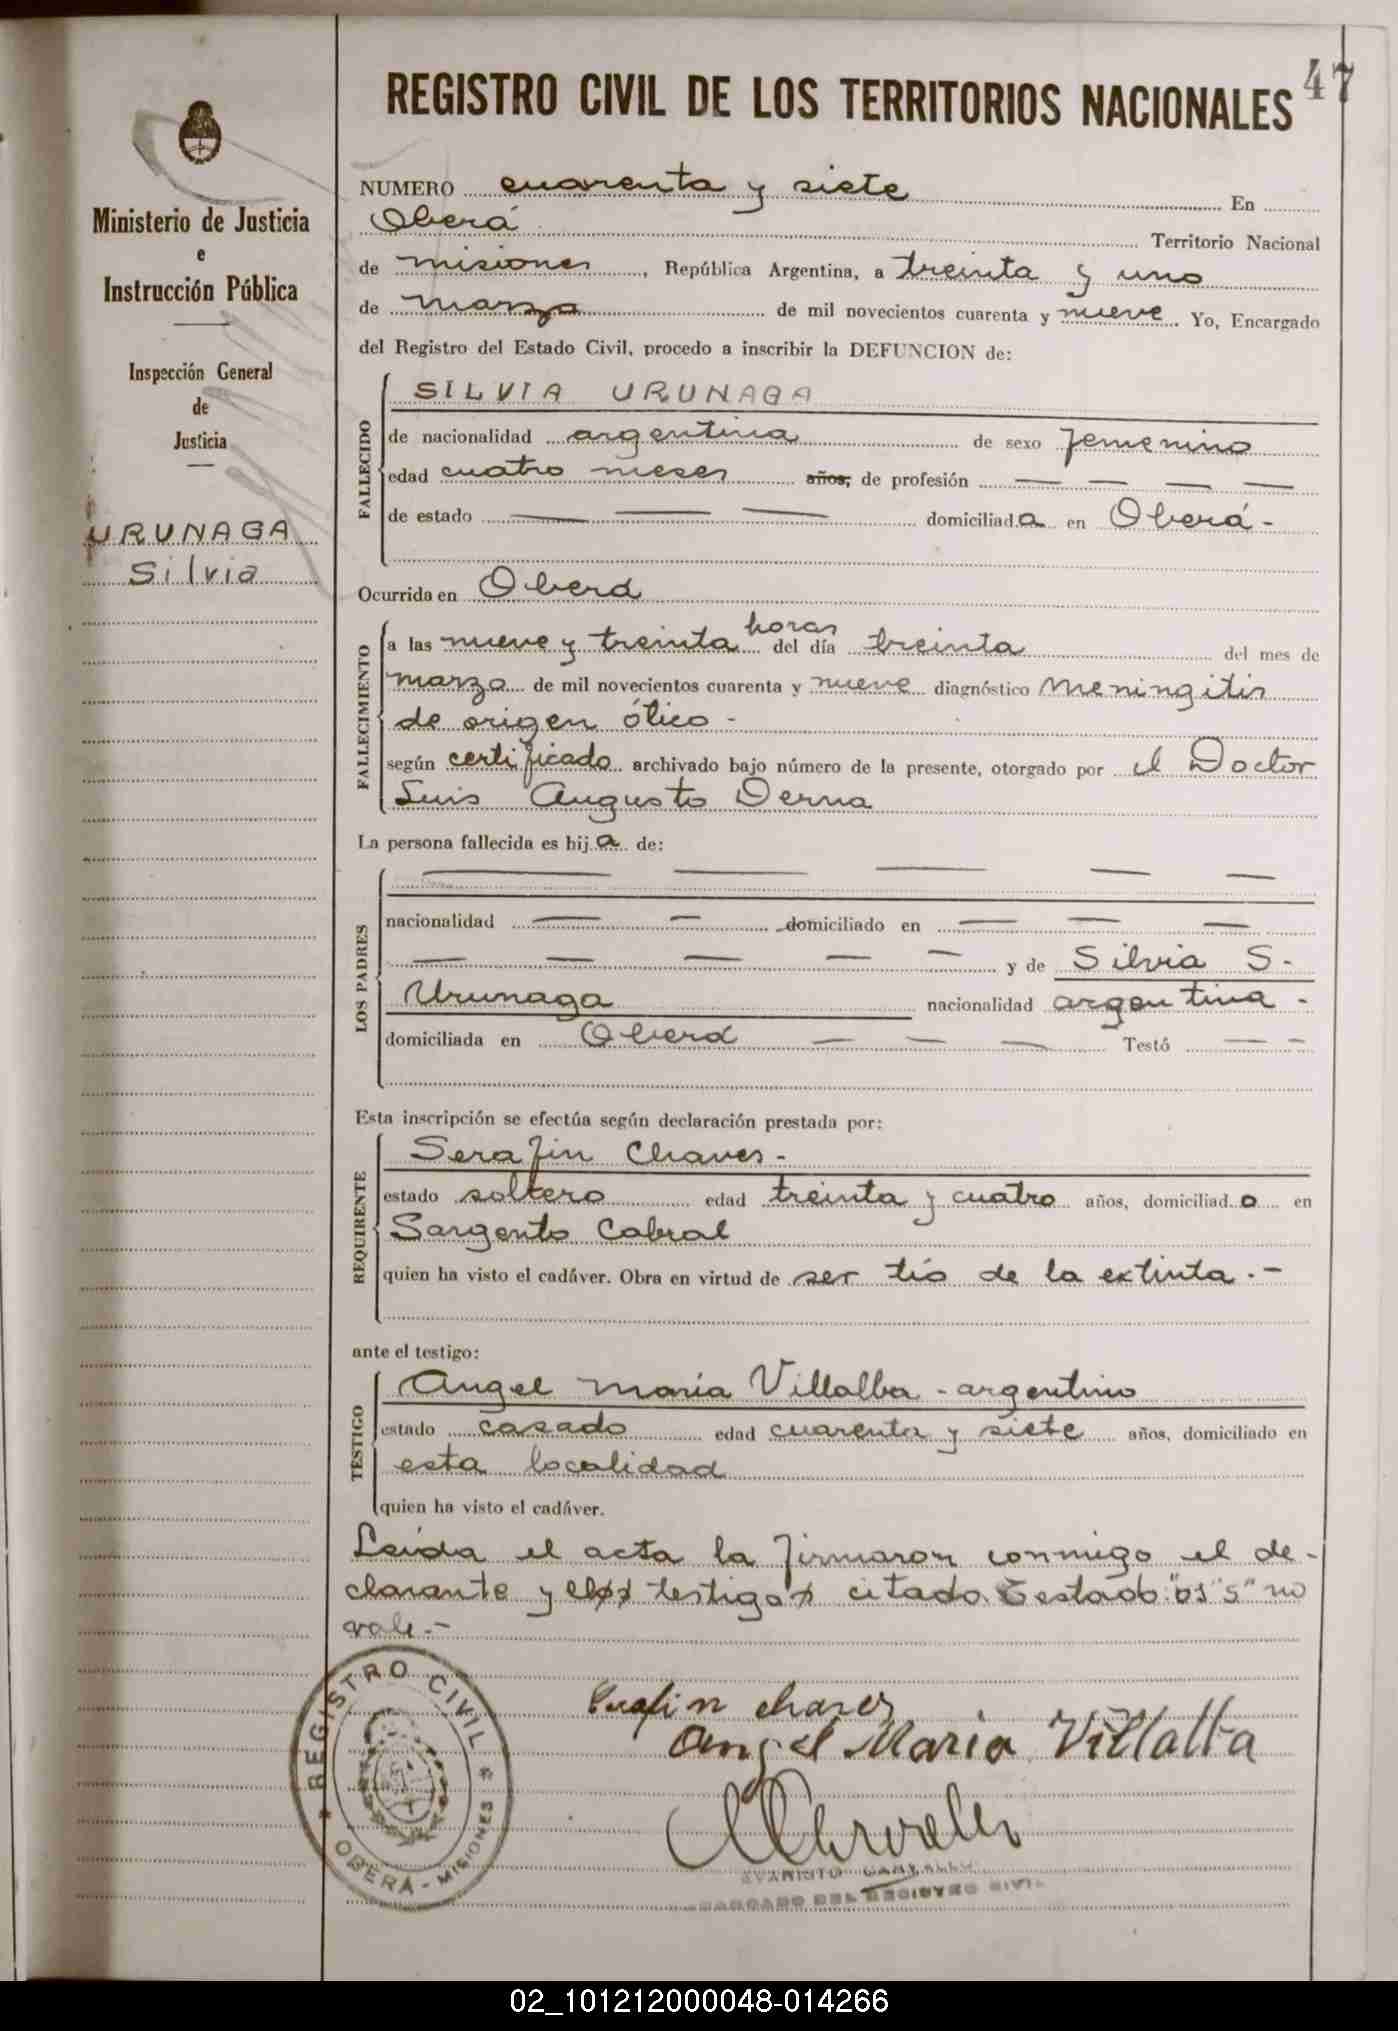 47
REGISTRO CIVIL DE LOS TERRITORIOS NACIONALES
Ministerio de Justicia
e
Instrucción Pública
Inspección General
de
Justicia
URUNAGA
Silvia
NUMERO cuarenta y siete En
Oberá Territorio Nacional
de misiones, República Argentina, a treinta y uno
de marzo de mil novecientos cuarenta y nueve. Yo, Encargado
del Registro del Estado Civil, procedo a inscribir la DEFUNCION de:
FALLECIDO
SILVIA URUNAGA
de nacionalidad argentina de sexo femenino
edad cuatro meses años, de profesión — — — —
de estado — — — domiciliada en Oberá -
Ocurrida en Oberá
FALLECIMIENTO
horas
a las nueve y treinta del día treinta del mes de
marzo de mil novecientos cuarenta y nueve diagnóstico Meningitis
de origen ótico -
según certificado archivado bajo número de la presente, otorgado por el Doctor
Luis Augusto Derna
La persona fallecida es hija de:
LOS PADRES
— — — — —
nacionalidad — — domiciliado en — — —
— — — — — y de Silvia S.
Urunaga nacionalidad argentina -
domiciliada en Oberá — — — Testó — —
Esta inscripción se efectúa según declaración prestada por:
REQUIRENTE
Serafin Chaves -
estado soltero edad treinta y cuatro años, domiciliado en
Sargento Cabral
quien ha visto el cadáver. Obra en virtud de ser tío de la extinta. -
ante el testigo:
TESTIGO
Angel maría Villalba - argentino
estado casado edad cuarenta y siete años, domiciliado en
esta localidad
quien ha visto el cadáver.
Leída el acta la firmaron conmigo el de-
clarante y el testigo citado. Testado: "os" "s" no
vale. -
Serafin chaves
Angel Maria Villalba
REGISTRO CIVIL
OBERÁ - MISIONES
EVARISTO
ENCARGADO DEL REGISTRO CIVIL
02_101212000048-014266